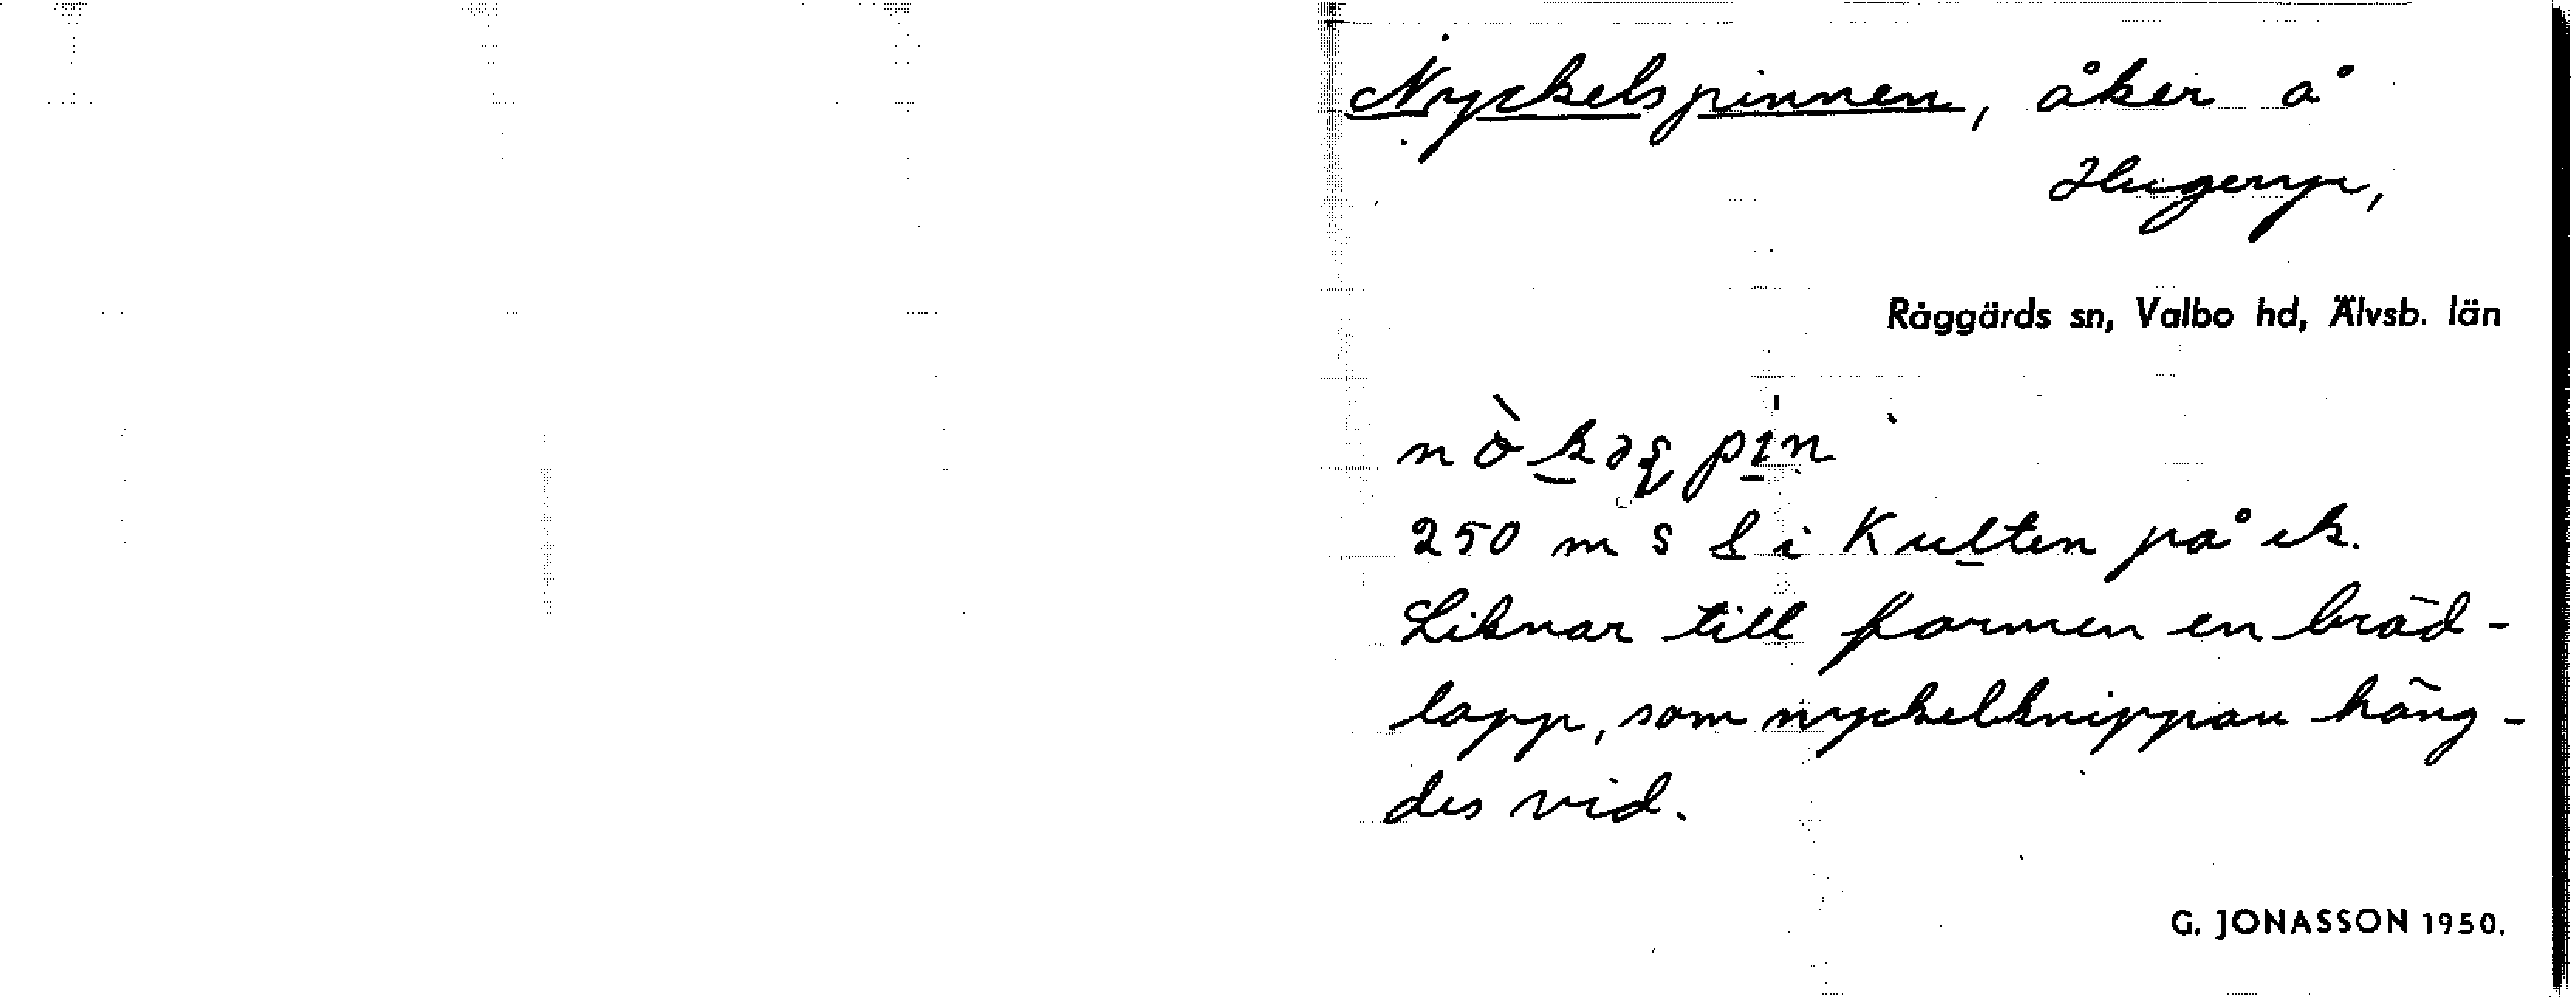 Nyckelspinnen, åker å
Hugeryr,
Råggärds sn, Valbo hd, Älvsb. län
250 m S i Kulten på ek.
Liknar till formen en bräd-
lapp, som nyckelknippan häng-
des vid.
G. JONASSON 1950.